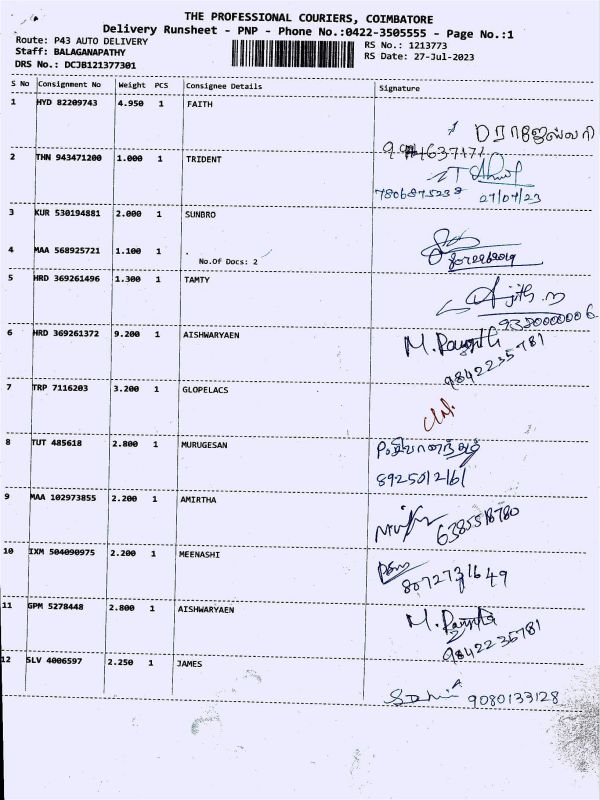 THE PROFESSIONAL COURIERS, COIMBATORE
Delivery Runsheet - PNP - Phone No.:0422-3505555 - Page No.:1
Route: P43 AUTO DELIVERY
Staff: BALAGANAPATHY
DRS No.: DCJB121377301
RS No.: 1213773
RS Date: 27-Jul-2023
S No Consignment No Weight PCS Consignee Details Signature
1 HYD 82209743 4.950 1 FAITH
2 THN 943471200 1.000 1 TRIDENT
7806875238 27/07/23
3 KUR 530194881 2.000 1 SUNBRO
4 MAA 568925721 1.100 1
No.Of Docs: 2
5 HRD 369261496 1.300 1 TAMTY
Ajith.m
9350000006
6 HRD 369261372 9.200 1 AISHWARYAEN
9842235781
7 TRP 7116203 3.200 1 GLOPELACS
8 TUT 485618 2.800 1 MURUGESAN
8925012161
9 MAA 102973855 2.200 1 AMIRTHA
6385518780
10 IXM 504090975 2.200 1 MEENASHI
8072731649
11 GPM 5278448 2.800 1 AISHWARYAEN
9842235781
12 SLV 4006597 2.250 1 JAMES
9080133128